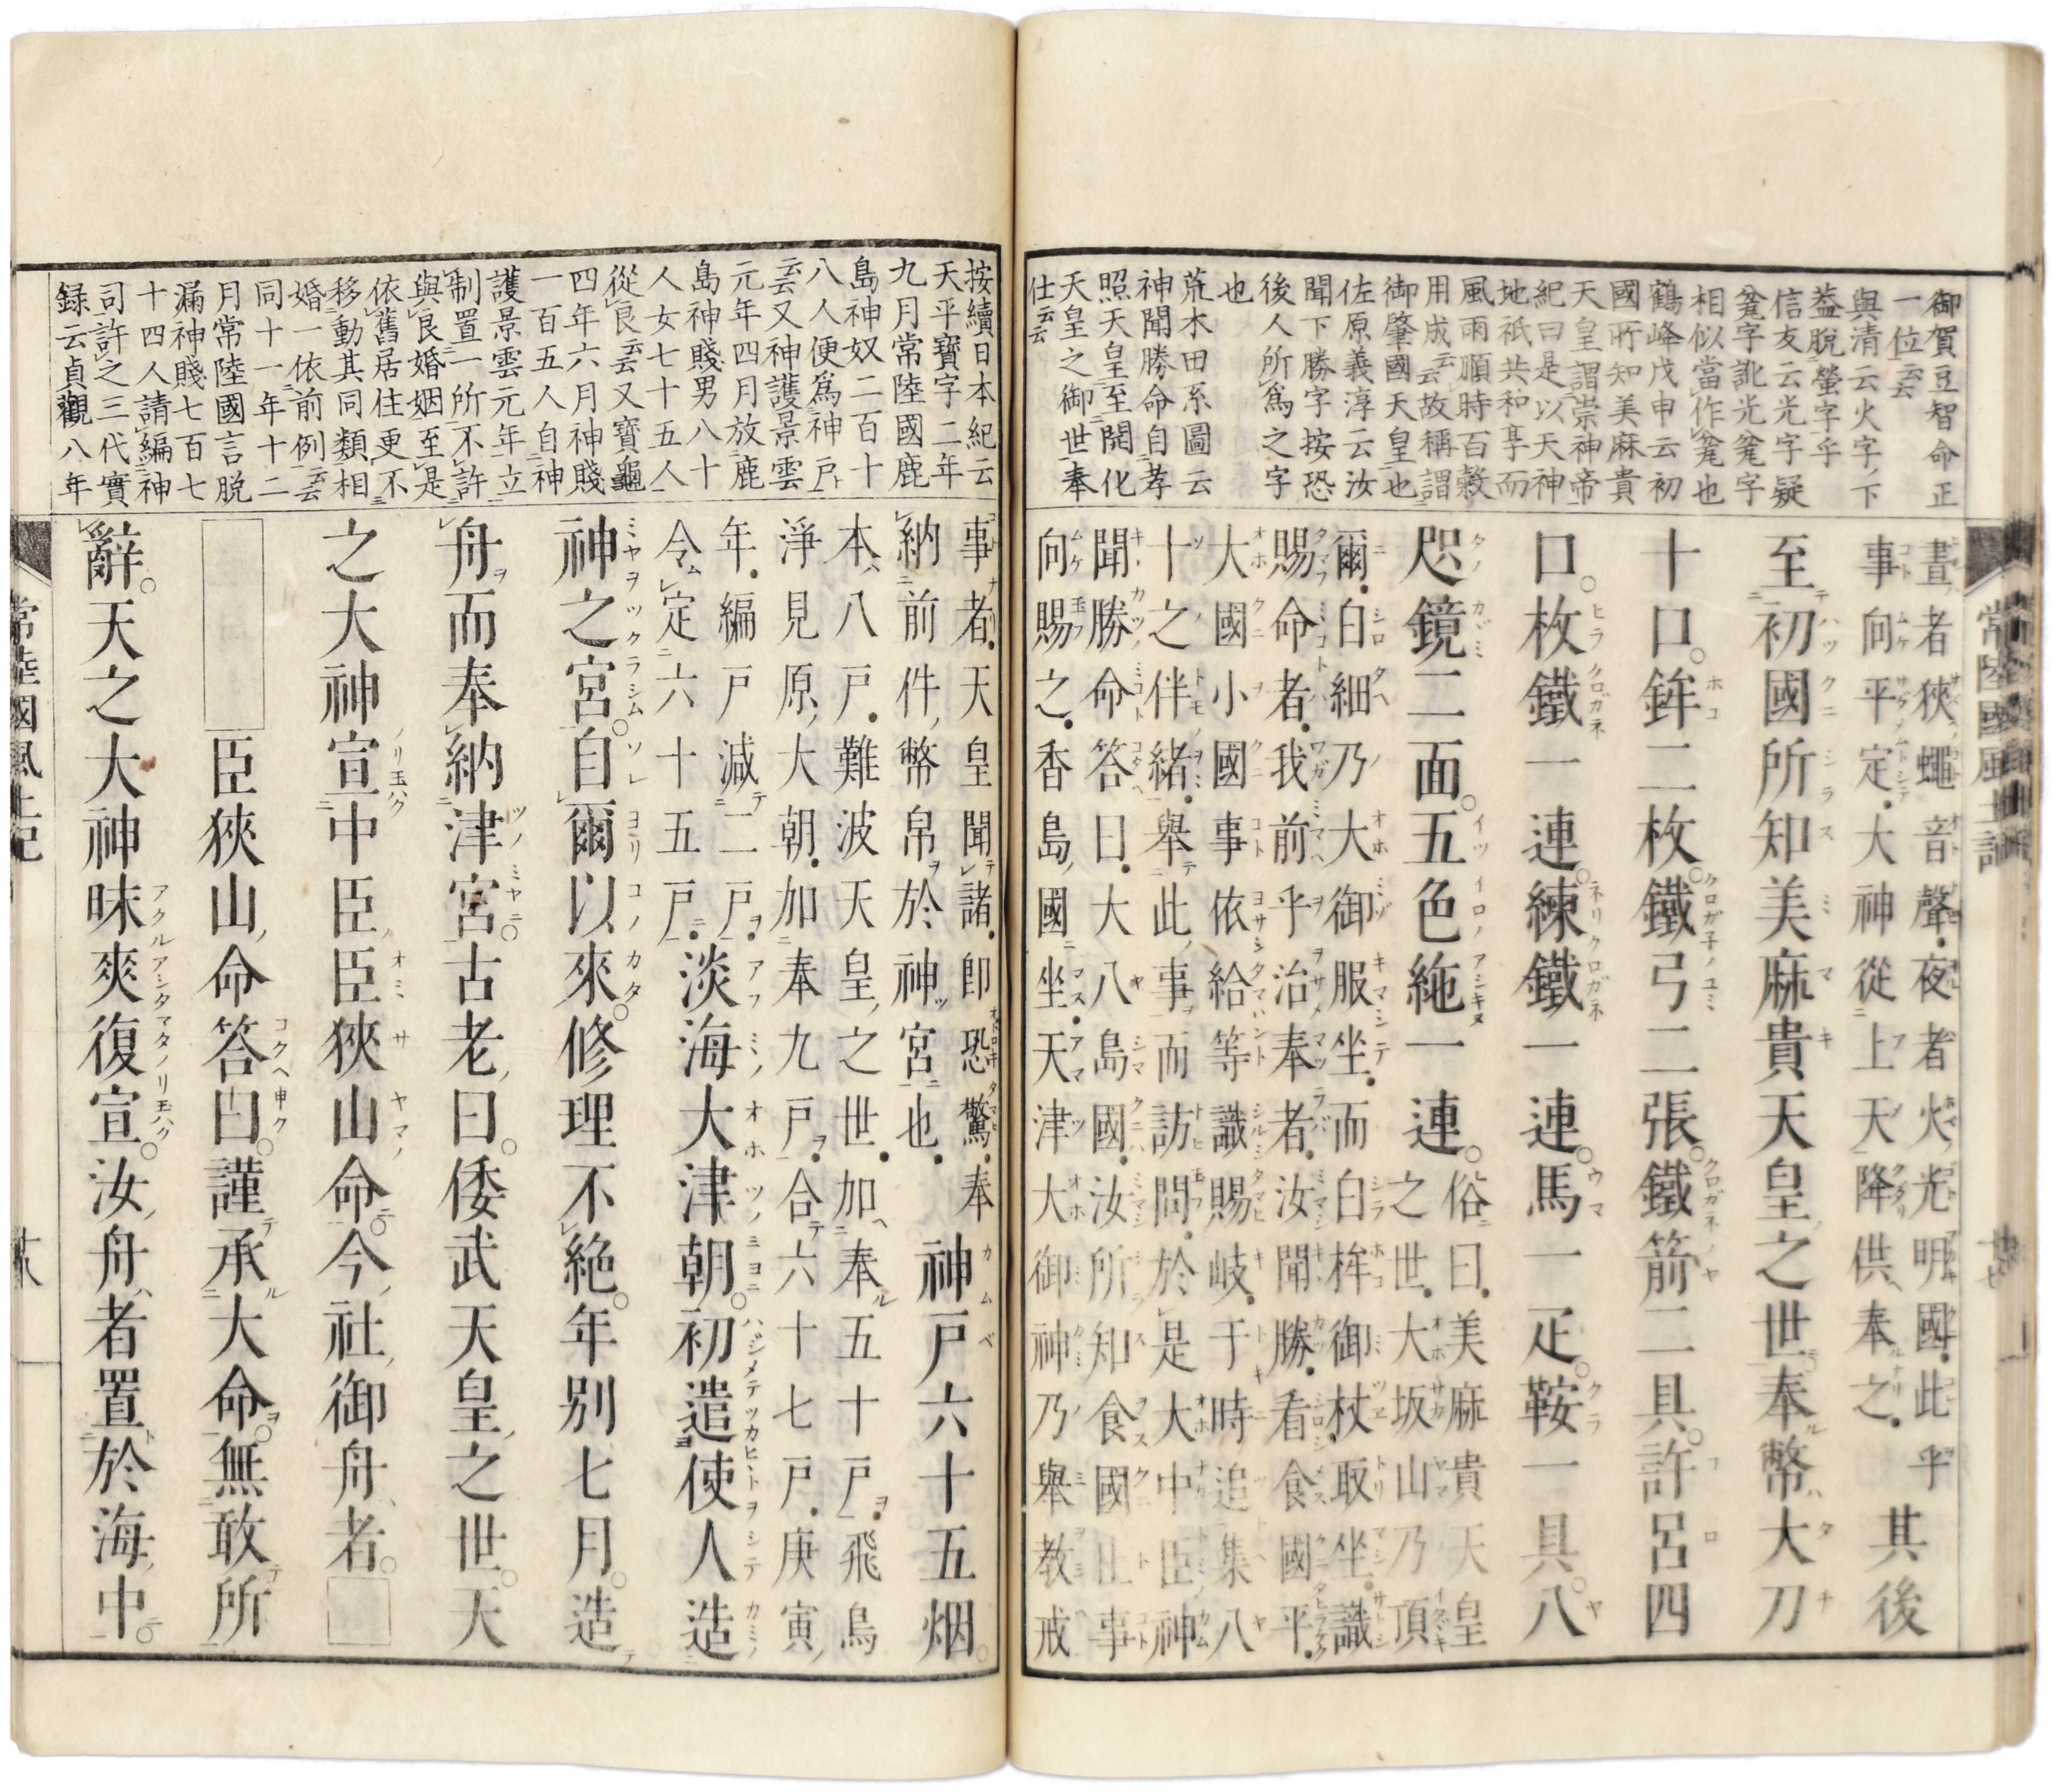 御賀豆智命正
一位云云
與清云火字ノ下
蓋脱螢字乎
信友云光字疑
字訛光字
相似當作也
鶴峰戊申云初
國所知美麻貴
天皇謂崇神帝
紀曰是以天神
地祇共和享而
風雨順時百穀
用成云云故稱謂
御肇國天皇也
佐原義淳云汝
聞下勝字按恐
後人所爲之字
也
荒木田系圖云
神聞勝命自孝
照天皇至開化
天皇之御世奉
仕云云
晝者狹蠅音聲夜者火光明國此乎
事向平定大神從上天降供奉之
其後
至初國所知美麻貴天皇之世奉幣大刀
十口鉾二枚鐵弓二張鐵箭二具許呂四
口枚鐵一連練鐵一連馬一疋鞍一具八
咫鏡二面五色絁一連
俗曰美麻貴天皇
之世大坂山乃頂
爾白細乃大御服坐而白桙御杖取坐識
賜命者我前乎治奉者汝聞勝看食國平
大國小國事依給等識賜岐于時追集八
十之伴緒舉此事而訪問於是大中臣神
聞勝命答曰大八島國汝所知食國止事
向賜之香島國坐天津大御神乃舉教戒
常陸國風土記
按續日本紀云
天平寶字二年
九月常陸國鹿
島神奴二百十
八人便爲神戸
云云又神護景雲
元年四月放鹿
島神賤男八十
人女七十五人
從良云云又寶龜
四年六月神賤
一百五人自神
護景雲元年立
制置一所不許
與良婚姻至是
依舊居住更不
移動其同類相
婚一依前例云云
同十一年十二
月常陸國言脱
漏神賤七百七
十四人請編神
司許之三代實
録云貞觀八年
事者天皇聞諸即恐驚奉
納前件幣帛於神宮也
神戸六十五烟
本八戸難波天皇之世加奉五十戸飛鳥
淨見原大朝加奉九戸合六十七戸庚寅
年編戸減二戸
令定六十五戸
淡海大津朝初遣使人造
神之宮自爾以來修理不絶年別七月造
舟而奉納津宮古老曰倭武天皇之世天
之大神宣中臣臣狹山命今社御舟者
臣狹山命答曰謹承大命無敢所
辭天之大神昧爽復宣汝舟者置於海中
常陸國風土記